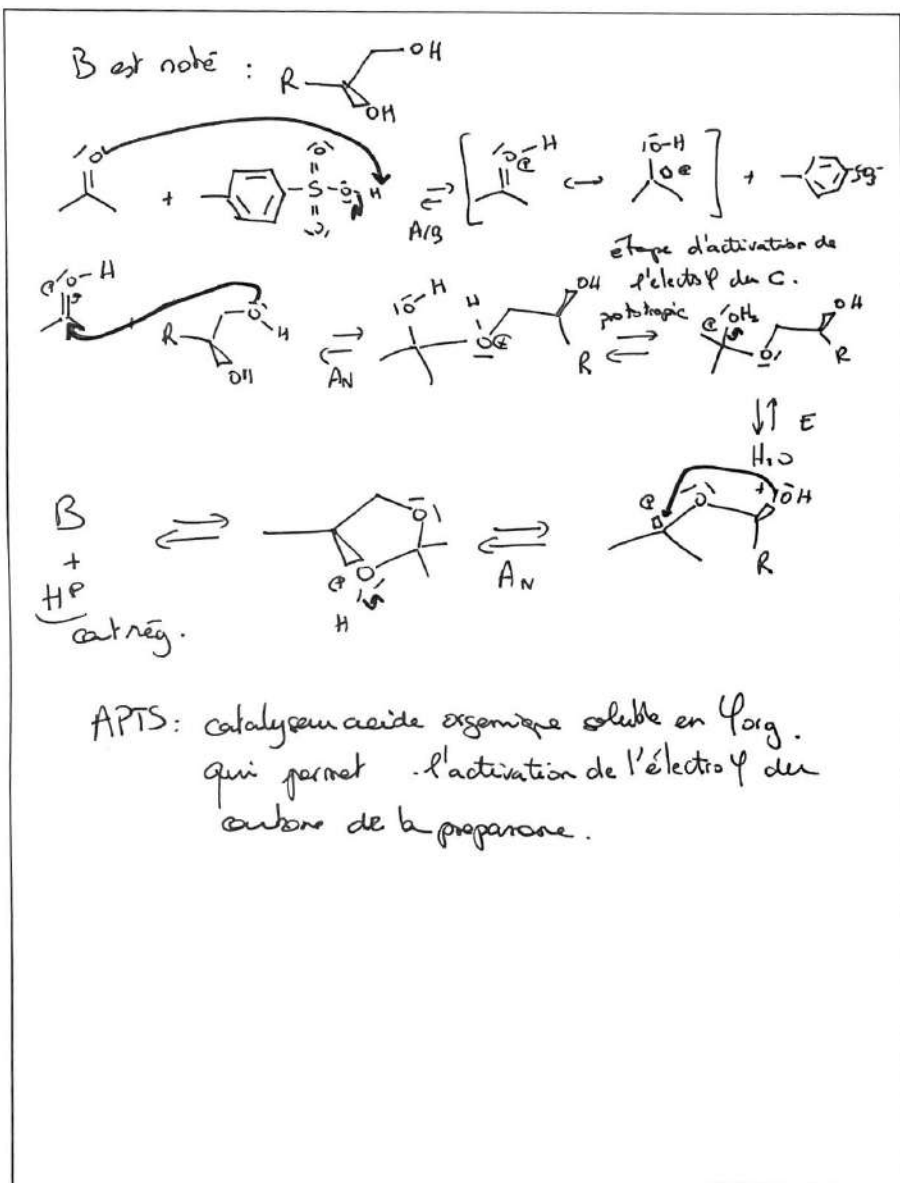 B est noté :
R
OH
OH
+
A/B
+
étape d'activation de
l'électroφ du C.
R
OH
AN
OH
R
prototropie
OH
R
E
H2O
+
OH
R
AN
B
+
H⊕
cat rég.
APTS : catalyseur acide organique soluble en φorg.
qui permet l'activation de l'électroφ du
carbone de la propanone.